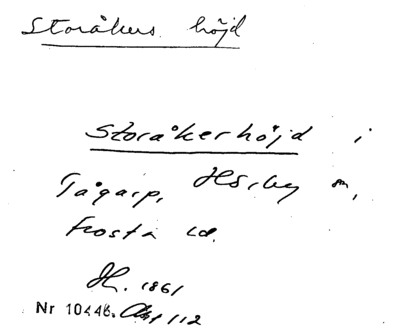 Storåkers höjd
Storåkerhöjd i
Tågarp, Hörby sn,
Frosta hd.
H. 1861
Nr 10446. Akt 112